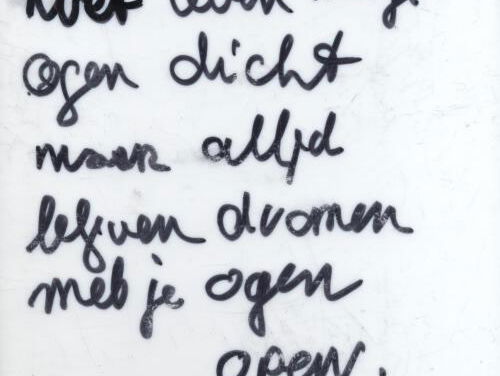 ogen dicht
maar altijd
blijven dromen
met je ogen
open.